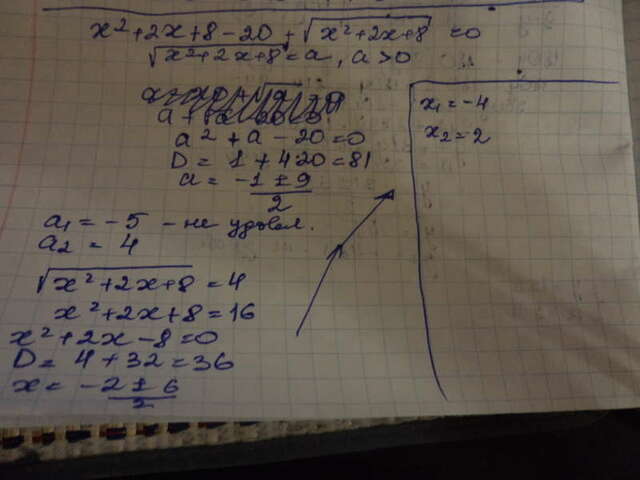 x²+2x+8-20+√(x²+2x+8) =0
√(x²+2x+8) = a, a>0
a² + a - 20 = 0
D = 1 + 4·20 = 81
a = (-1 ± 9)/2
a₁ = -5 - не удовл.
a₂ = 4
√(x²+2x+8) = 4
x²+2x+8 = 16
x²+2x-8=0
D = 4 + 32 = 36
x = (-2 ± 6)/2
x₁ = -4
x₂ = 2